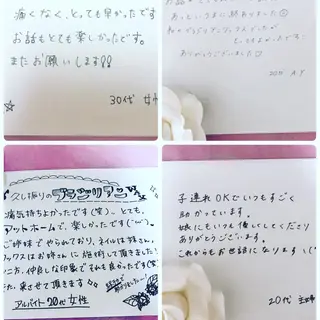 痛くなく、とっても早かったです
お話もとても楽しかったです。
またお願いします!!
30代 女性
ありがとうございました
久し振りの
ブラジリアン
痛気持ちよかったです(笑)。とても、
アットホームで、楽しかったです(^^)。
ご姉妹でやられており、ネイルは妹さん、
ワックスはお姉さんに施術して頂きました!
仲良しな印象でそれも良かったです
来させて頂きます
アルバイト 20代 女性
子連れOKでいつもすごく
助かっています。
娘にもいつも優しくしてくださり
ありがとうございます。
これからもお世話になります
20代 主婦